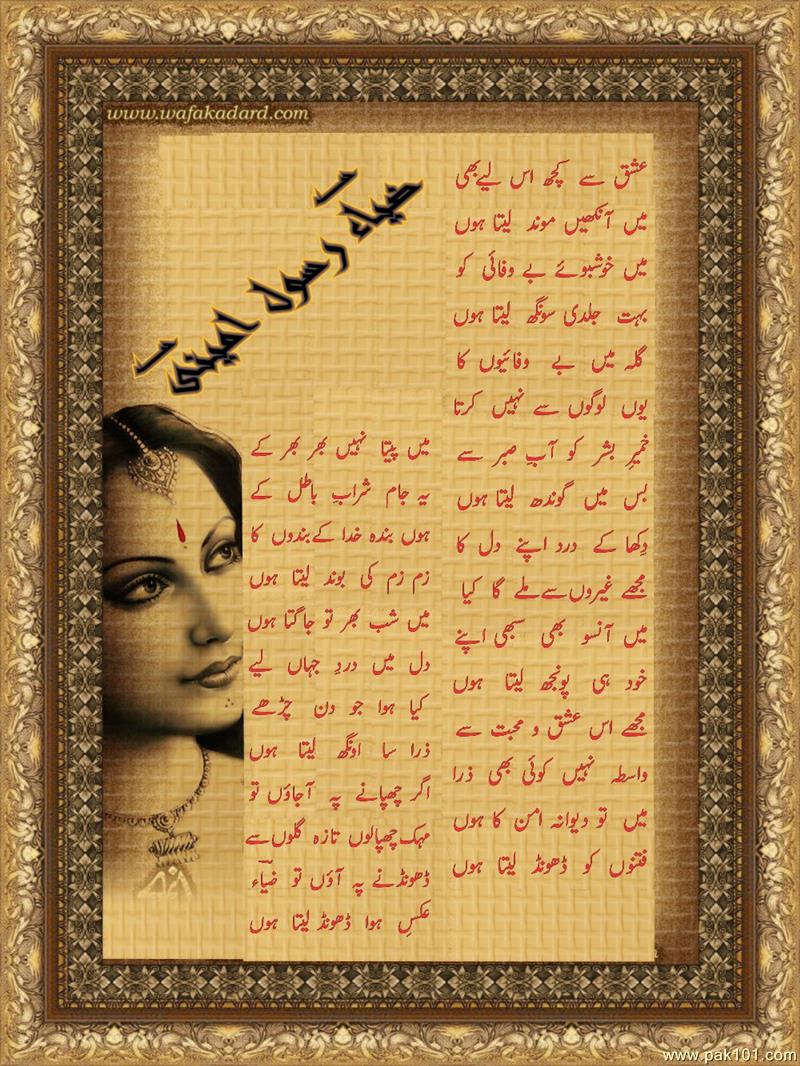 www.wafakadard.com
ضیاء رسول امینی
عشق سے کچھ اس لیے بھی
میں آنکھیں موند لیتا ہوں
میں خوشبوئے بے وفائی کو
بہت جلدی سونگھ لیتا ہوں
گلہ میں بے وفائیوں کا
یوں لوگوں سے نہیں کرتا
خمیرِ بشر کو آبِ صبر سے
بس میں گوندھ لیتا ہوں
دِکھا کے درد اپنے دل کا
مجھے غیروں سے ملے گا کیا
میں آنسو بھی سبھی اپنے
خود ہی پونجھ لیتا ہوں
مجھے اس عشق و محبت سے
واسطہ نہیں کوئی بھی ذرا
میں تو دیوانہ امن کا ہوں
فتنوں کو ڈھونڈ لیتا ہوں
میں پیتا نہیں بھر بھر کے
یہ جام شرابِ باطل کے
ہوں بندہ خدا کے بندوں کا
زم زم کی بوند لیتا ہوں
میں شب بھر تو جاگتا ہوں
دل میں دردِ جہاں لیے
کیا ہوا جو دن چڑھے
ذرا سا اونگھ لیتا ہوں
اگر چھپانے پہ آجاؤں تو
مہک چھپالوں تازہ گلوں سے
ڈھونڈنے پہ آؤں تو ضیاؔء
عکسِ ہوا ڈھونڈ لیتا ہوں
www.pak101.com